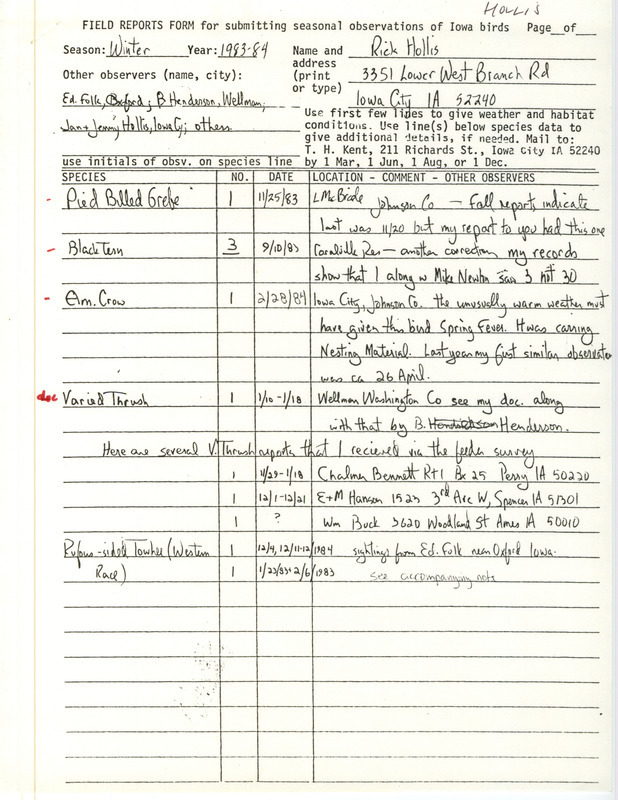 HOLLIS
FIELD REPORTS FORM for submitting seasonal observations of Iowa birds Page__of__
Season: Winter Year: 1983-84
Name and address (print or type)
Rick Hollis
3351 Lower West Branch Rd
Iowa City IA 52240
Other observers (name, city):
Ed. Folk, Oxford; B Henderson, Wellman,
Jan + Jenny Hollis, Iowa Cy; others
Use first few lines to give weather and habitat
conditions. Use line(s) below species data to
give additional details, if needed. Mail to:
T. H. Kent, 211 Richards St., Iowa City IA 52240
by 1 Mar, 1 Jun, 1 Aug, or 1 Dec.
use initials of obsv. on species line
SPECIES NO. DATE LOCATION - COMMENT - OTHER OBSERVERS
- Pied Billed Grebe 1 11/25/83 L McBride Johnson Co — Fall reports indicate
last was 11/20 but my report to you had this one
- Black Tern 3 9/10/83 Coralville Res — another correction my records
show that I along w Mike Newlon saw 3 not 30
- Am. Crow 1 2/28/84 Iowa City, Johnson Co. the unusually warm weather must
have given this bird Spring Fever. It was carring
Nesting Material. Last year my first similar observation
was ca 26 April.
doc Varied Thrush 1 1/10-1/18 Wellman Washington Co see my doc. along
with that by B. Hendrickson Henderson.
Here are several V. Thrush reports that I recieved via the feeder survey
1 11/29-1/18 Chalmer Bennett Rt 1 Bx 25 Perry IA 50220
1 12/1-12/21 E+M Hansen 1523 3rd Ave W, Spencer IA 51301
1 ? Wm Buck 3620 Woodland St Ames IA 50010
Rufous-sided Towhee (Western 1 12/4, 12/11-12/1984 sightings from Ed. Folk near Oxford Iowa.
Race) 1 1/23/83+2/6/1983 see accompanying note